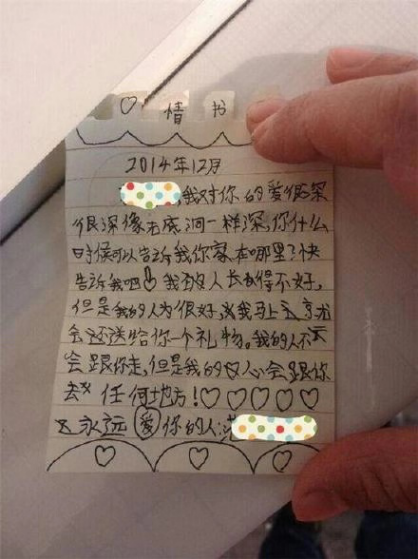 ♡ 情 书
2014年12月
我对你的爱很深
很深像无底洞一样深,你什么
时候可以告诉我你家在哪里?快
告诉我吧!我的人长得不好,
但是我的人为很好,我马上
会还送给你一个礼物。我的人不
会跟你走,但是我的心会跟你
去任何地方!♡♡♡♡♡
永远爱你的人: